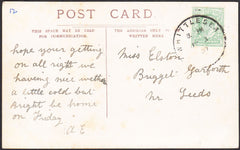 12
POST CARD.
THIS SPACE MAY BE USED FOR COMMUNICATION.
THE ADDRESS ONLY TO BE WRITTEN HERE.
WHITTLESEA
hope your getting
on all right we
having nice wether
a little cold but
Bright be home
on Friday
A E
Miss Elston
Brigget Garforth
Nr Leeds